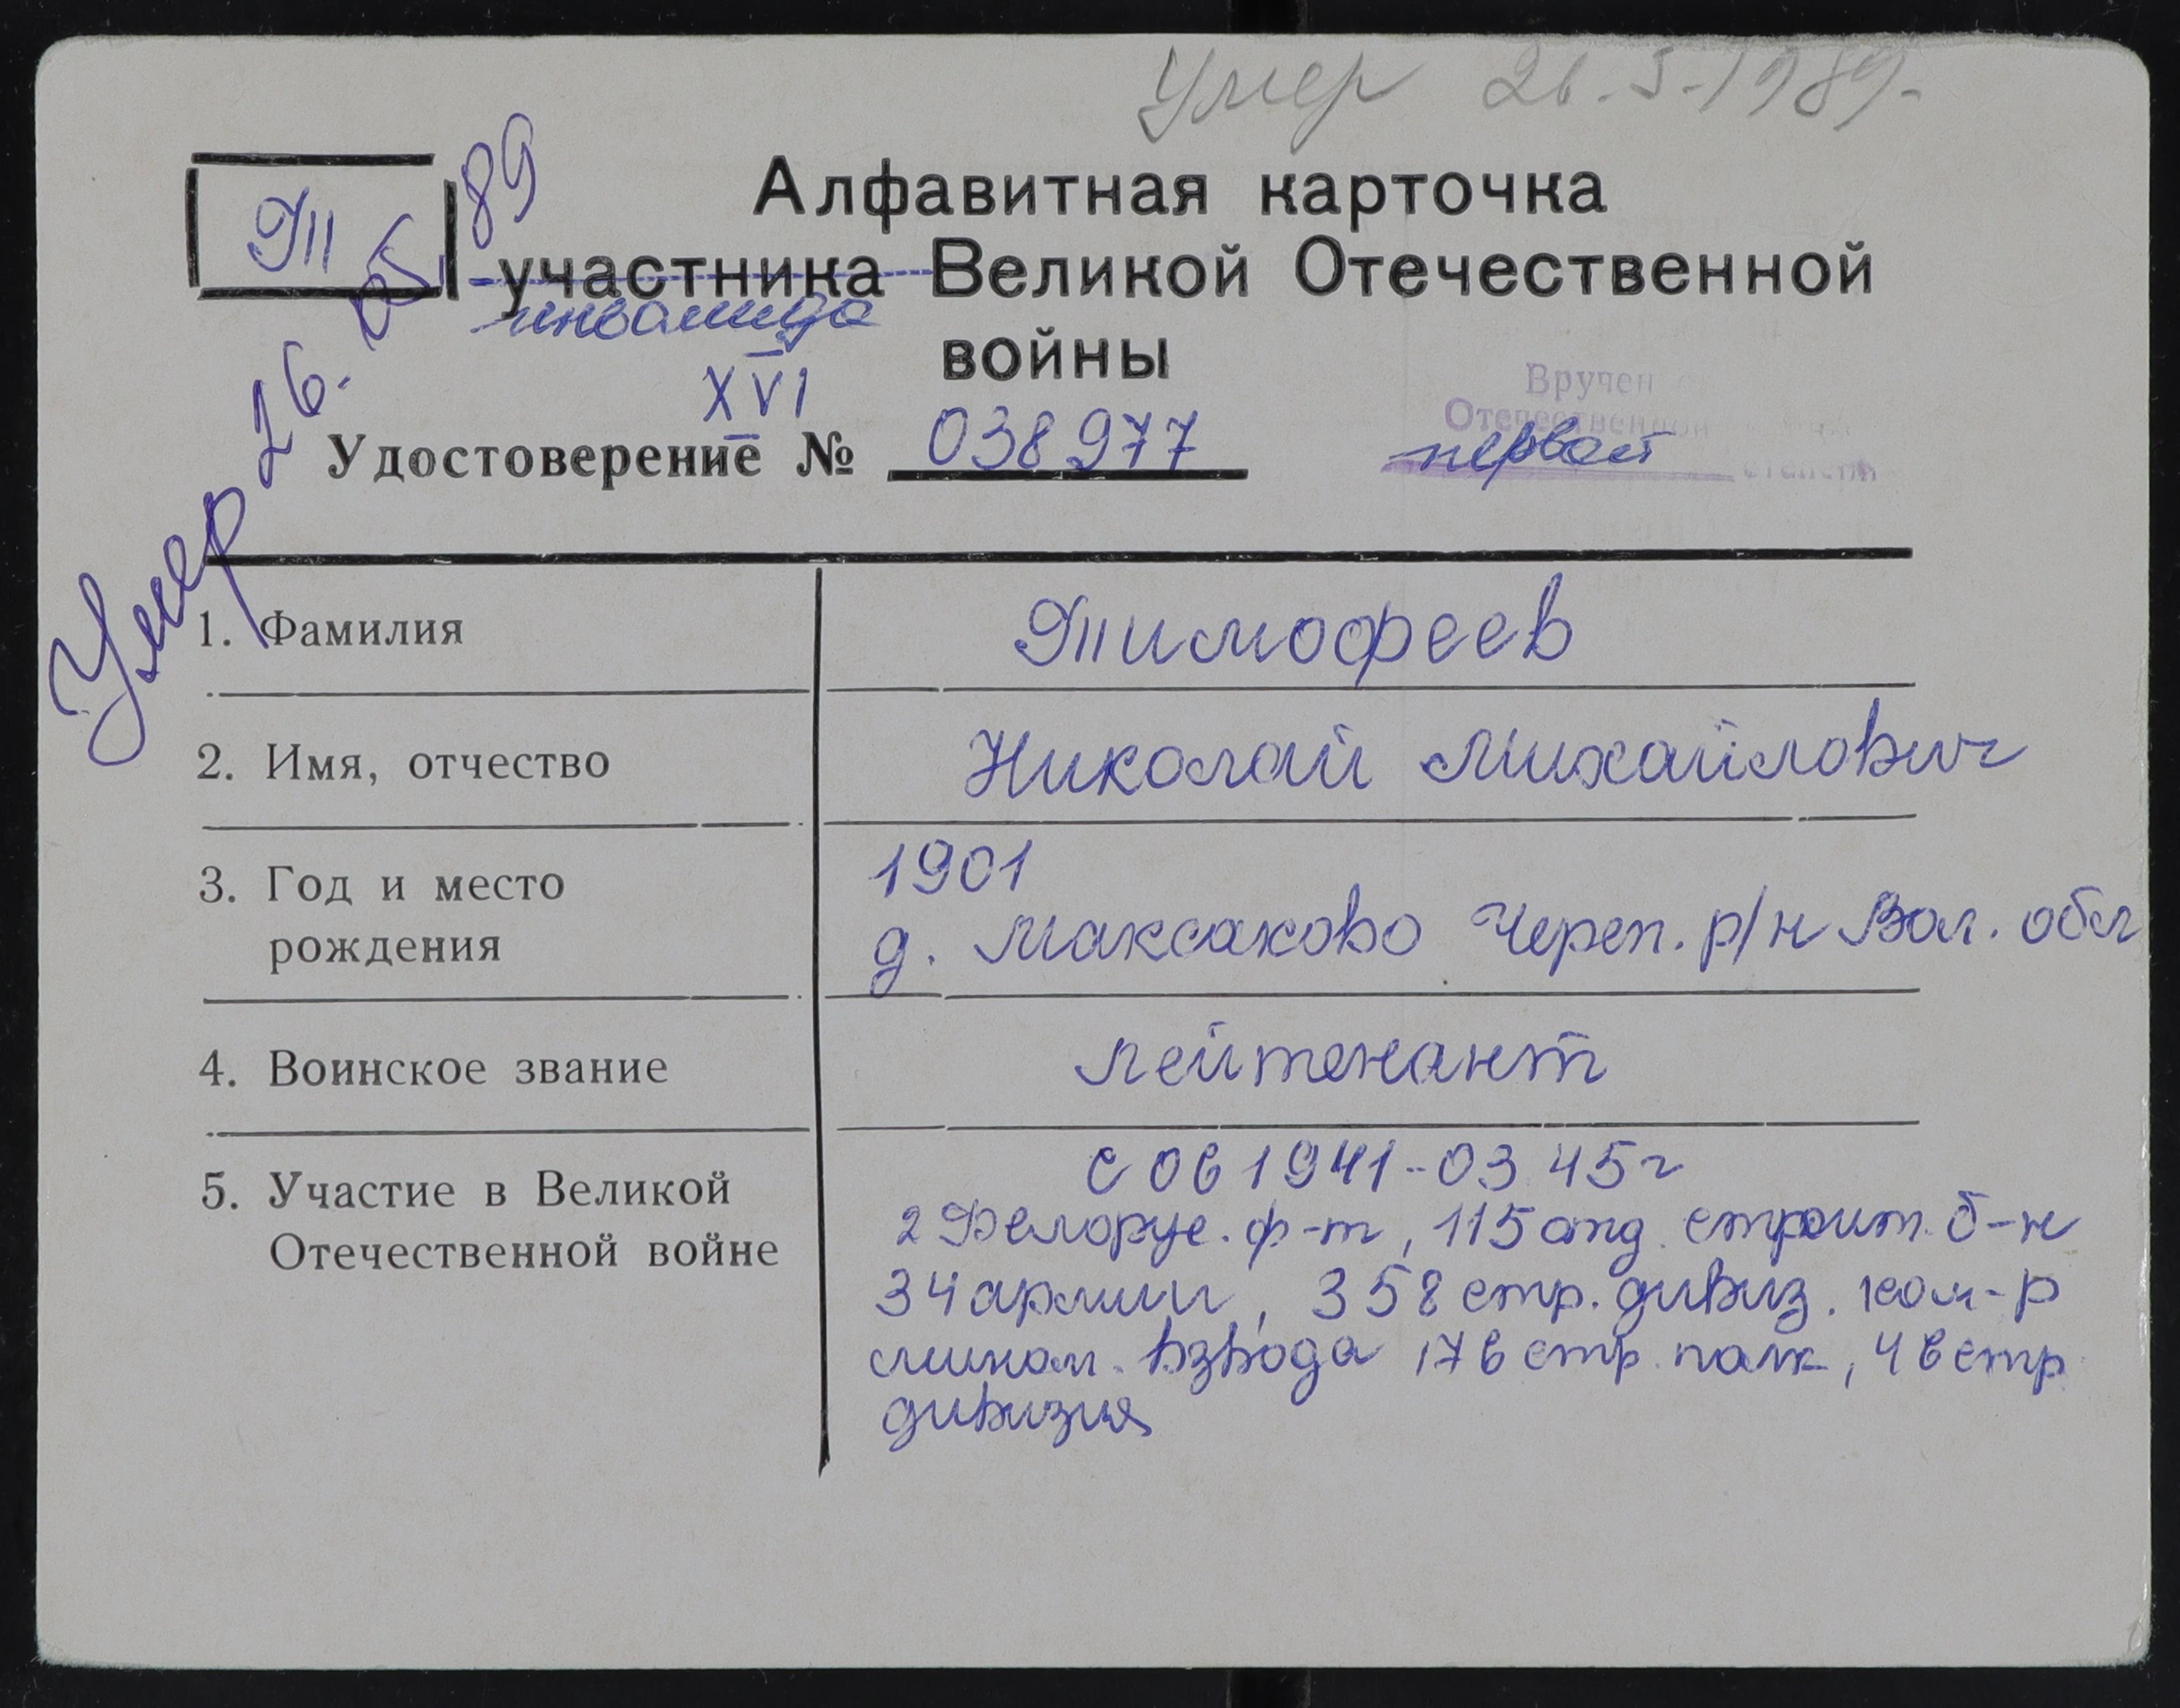 Умер 26.5.1989.
Т
Умер 26.05.89
Алфавитная карточка
участника Великой Отечественной
инвалида
войны
XVI
Удостоверение № 038977
Вручен
Отечественной
первой степени
1. Фамилия
Тимофеев
2. Имя, отчество
Николай Михайлович
3. Год и место
рождения
1901
д. Максаково Череп. р/н Вол. обл
4. Воинское звание
лейтенант
5. Участие в Великой
Отечественной войне
с 06 1941-03 45г
2 Белорус. ф-т, 115 отд. строит. б-н
34 армии, 358 стр. дивиз. ком-р
мином. взвода 176 стр. полк, 46 стр
дивизия